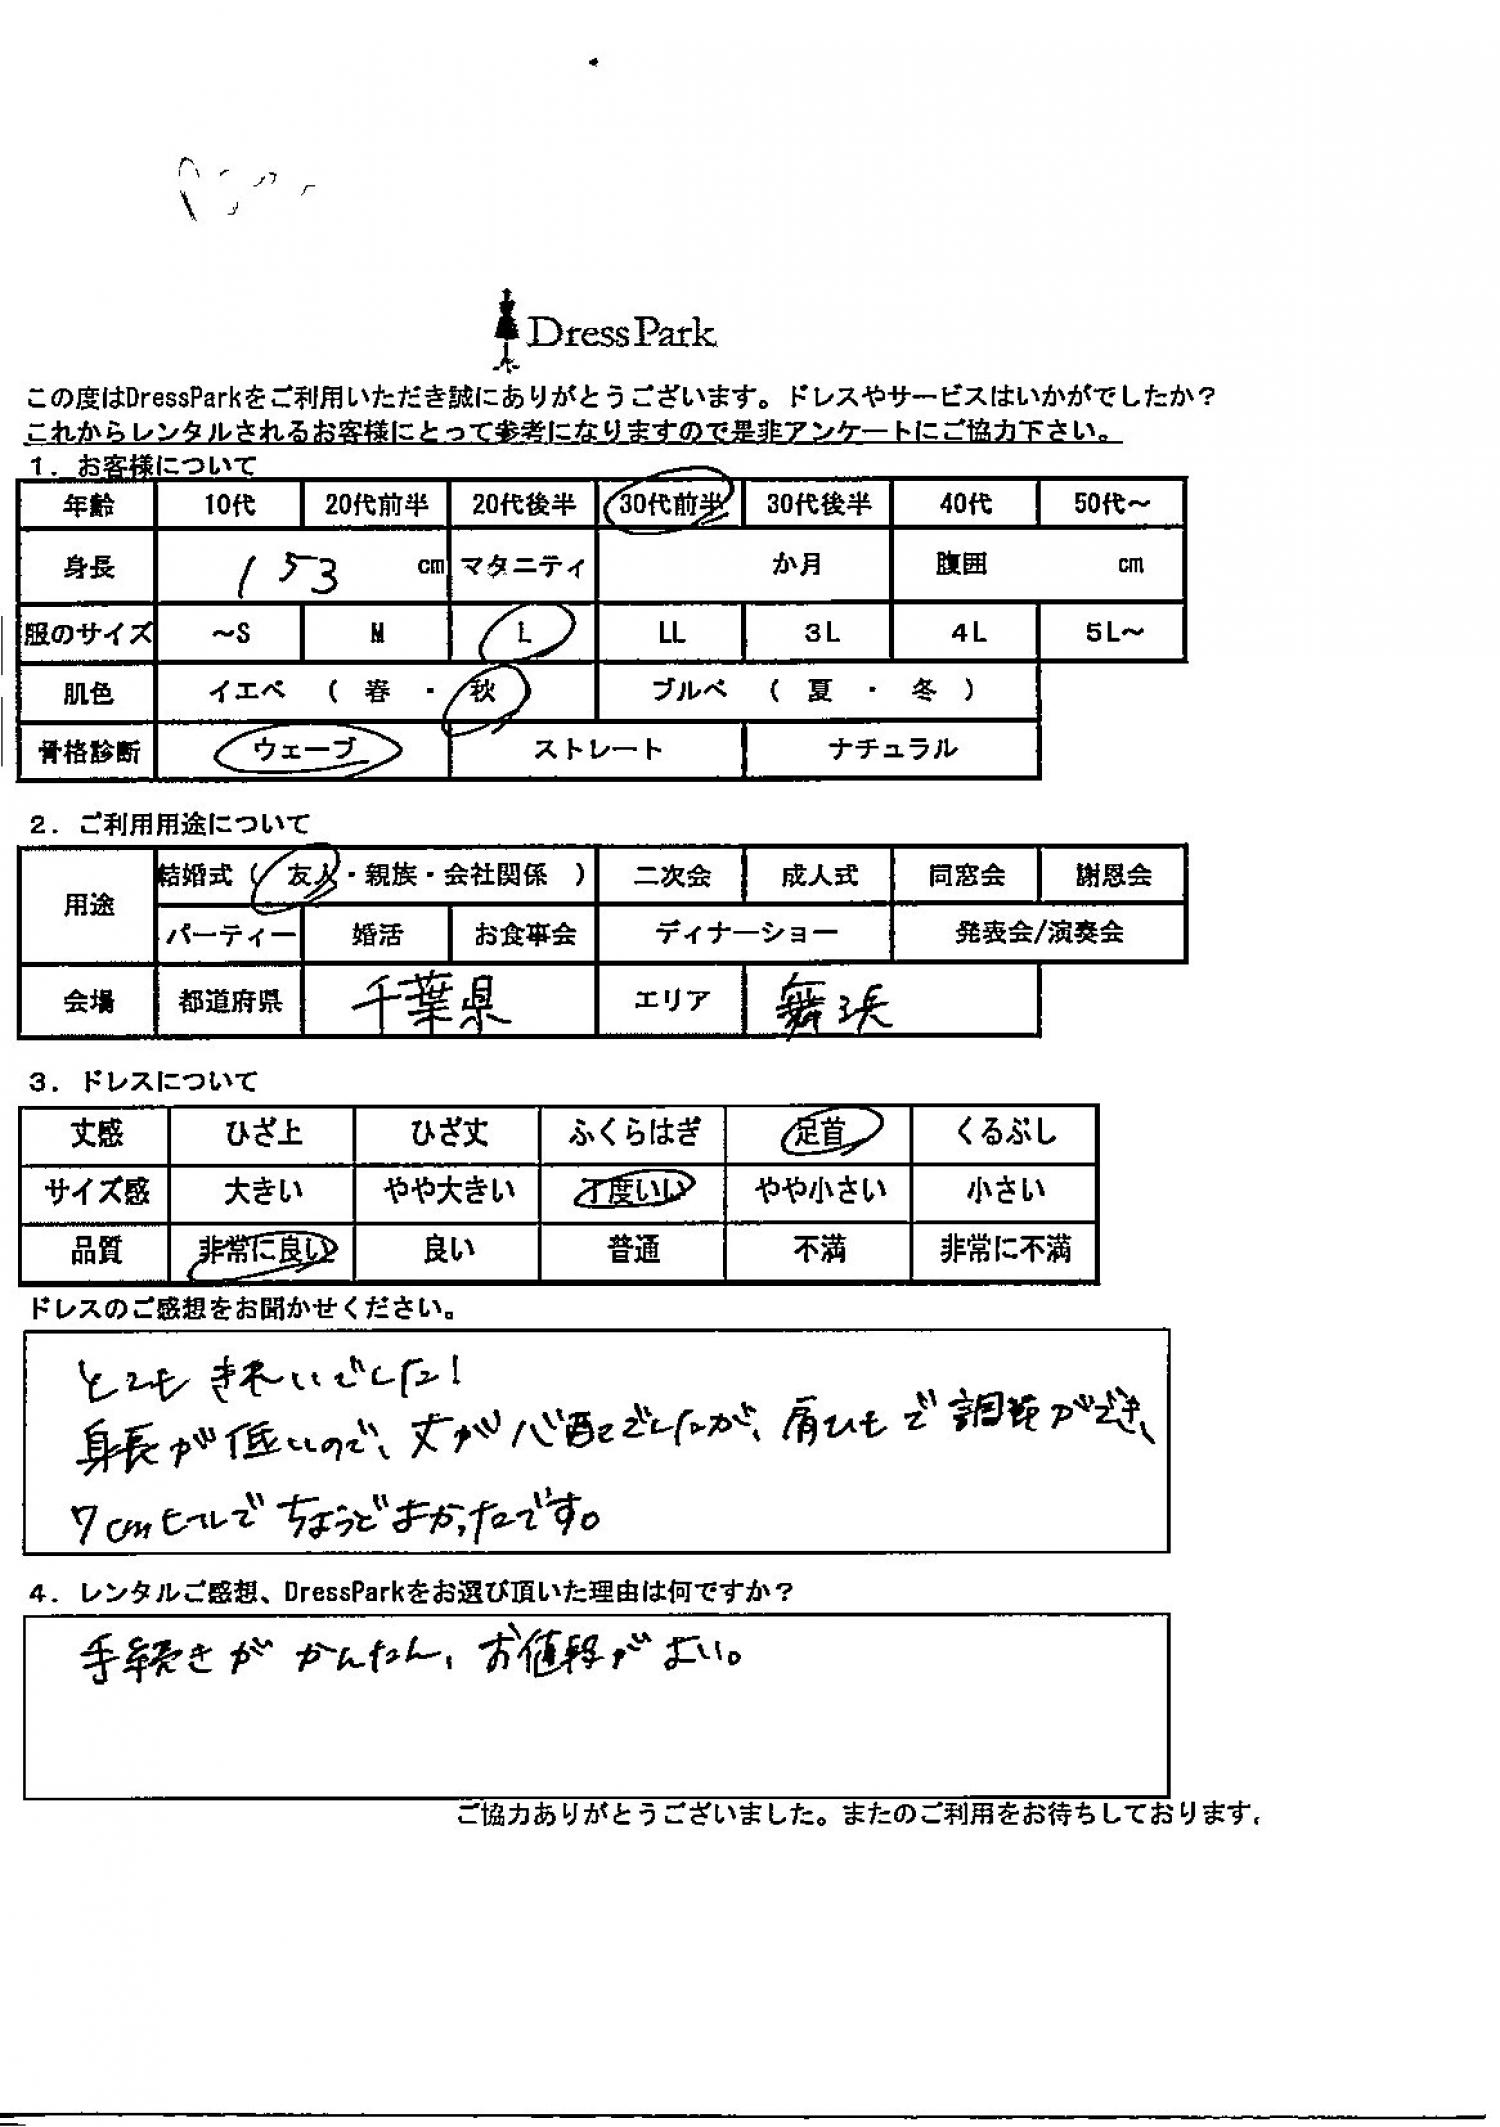 DressPark
この度はDressParkをご利用いただき誠にありがとうございます。ドレスやサービスはいかがでしたか？
これからレンタルされるお客様にとって参考になりますので是非アンケートにご協力下さい。
１．お客様について
年齢 10代 20代前半 20代後半 30代前半 30代後半 40代 50代～
身長 153 cm マタニティ か月 腹囲 cm
服のサイズ ～S M L LL 3L 4L 5L～
肌色 イエベ （ 春 ・ 秋 ） ブルベ （ 夏 ・ 冬 ）
骨格診断 ウェーブ ストレート ナチュラル
２．ご利用用途について
用途 結婚式（ 友人・親族・会社関係 ） 二次会 成人式 同窓会 謝恩会
パーティー 婚活 お食事会 ディナーショー 発表会/演奏会
会場 都道府県 千葉県 エリア 舞浜
３．ドレスについて
丈感 ひざ上 ひざ丈 ふくらはぎ 足首 くるぶし
サイズ感 大きい やや大きい 丁度いい やや小さい 小さい
品質 非常に良い 良い 普通 不満 非常に不満
ドレスのご感想をお聞かせください。
とてもきれいでした！
身長が低いので、丈が心配でしたが、肩ひもで調節ができ、
7cmヒールでちょうどよかったです。
４．レンタルご感想、DressParkをお選び頂いた理由は何ですか？
手続きがかんたん、お値段がよい。
ご協力ありがとうございました。またのご利用をお待ちしております。